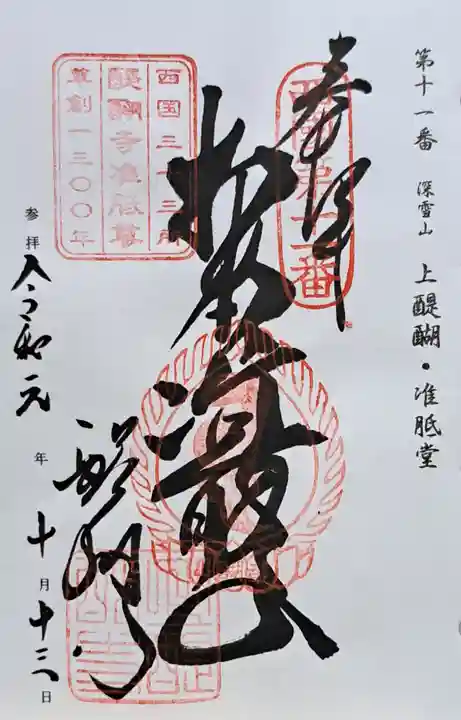 第十一番 深雪山 上醍醐・准胝堂
奉拝
西国第十一番
准胝
醍醐寺
西国三十三所
醍醐寺准胝尊
草創一三〇〇年
参拝 令和元年十月十三日